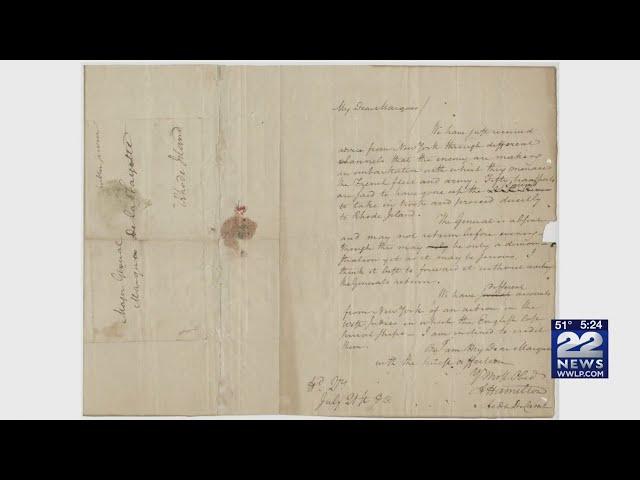 Major General
Marquis De la Fayette
Rhode Island
My Dear Marquis
We have just received
advice from New York through different
channels that the enemy are making
an embarkation with which they menace
the French fleet and army. Fifty transports
are said to have gone up the Sound
to take in troops and proceed directly
to Rhode Island.
The General is absent
and may not return before evening
though this may be only a demon-
stration yet as it may be serious, I
think it best to forward it without waiting
the Generals return.
different
We have accounts
from New York of an action in the
West Indies in which the English lost
several ships. I am inclined to credit
them.
I am My Dear Marquis
with the truest affection
Yr Most Obed
A Hamilton
Aide De Camp
Hd Qrs
July 21st 80
51° 5:24
22
NEWS
WWLP.COM